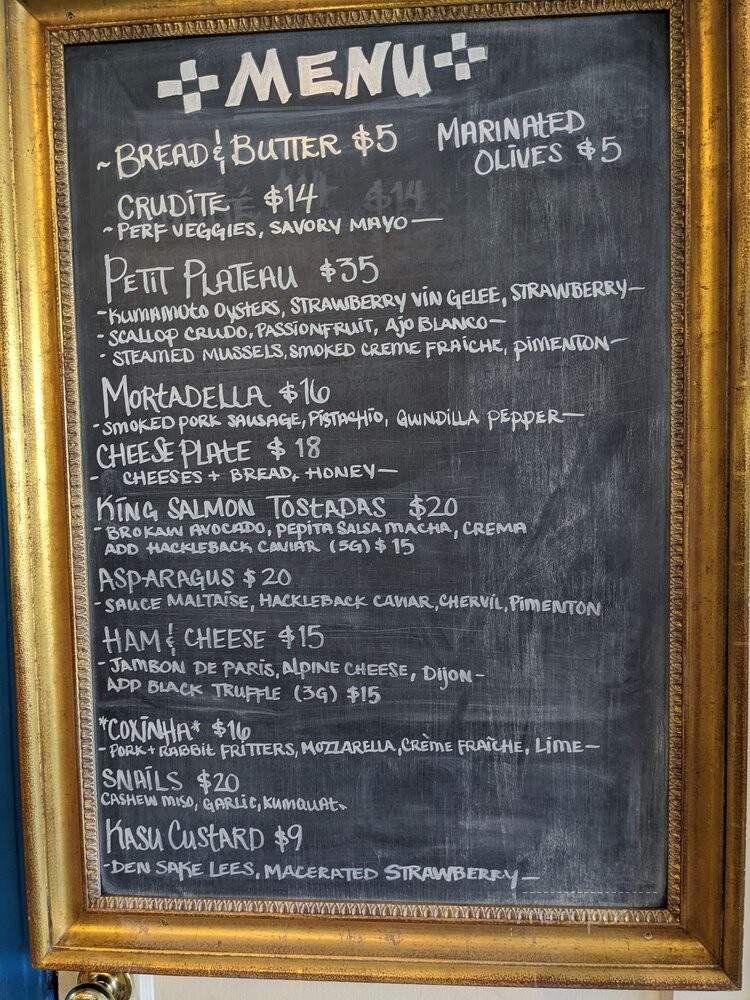 MENU
~BREAD & BUTTER $5
MARINATED
OLIVES $5
CRUDITE $14
~PERF VEGGIES, SAVORY MAYO—
PETIT PLATEAU $35
-KUMAMOTO OYSTERS, STRAWBERRY VIN GELEE, STRAWBERRY—
-SCALLOP CRUDO, PASSIONFRUIT, AJO BLANCO—
- STEAMED MUSSELS, SMOKED CREME FRAICHE, PIMENTON—
MORTADELLA $16
-SMOKED PORK SAUSAGE, PISTACHIO, GWINDILLA PEPPER—
CHEESE PLATE $18
- CHEESES + BREAD, HONEY—
KING SALMON TOSTADAS $20
-BROKAW AVOCADO, PEPITA SALSA MACHA, CREMA
ADD HACKLEBACK CAVIAR (5G) $15
ASPARAGUS $20
-SAUCE MALTAISE, HACKLEBACK CAVIAR, CHERVIL, PIMENTON
HAM & CHEESE $15
-JAMBON DE PARIS, ALPINE CHEESE, DIJON-
ADD BLACK TRUFFLE (3G) $15
*COXINHA* $16
-PORK + RABBIT FRITTERS, MOZZARELLA, CRÈME FRAÎCHE, LIME—
SNAILS $20
CASHEW MISO, GARLIC, KUMQUAT~
KASU CUSTARD $9
-DEN SAKE LEES, MACERATED STRAWBERRY—